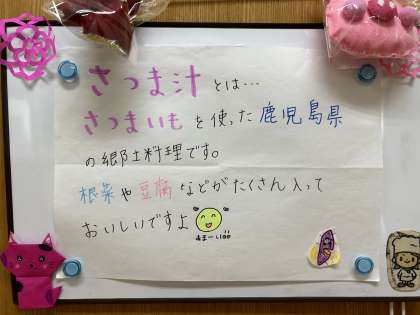 さつま汁とは…
さつまいもを使った鹿児島県
の郷土料理です。
根菜や豆腐などがたくさん入って
おいしいですよ
あまーい